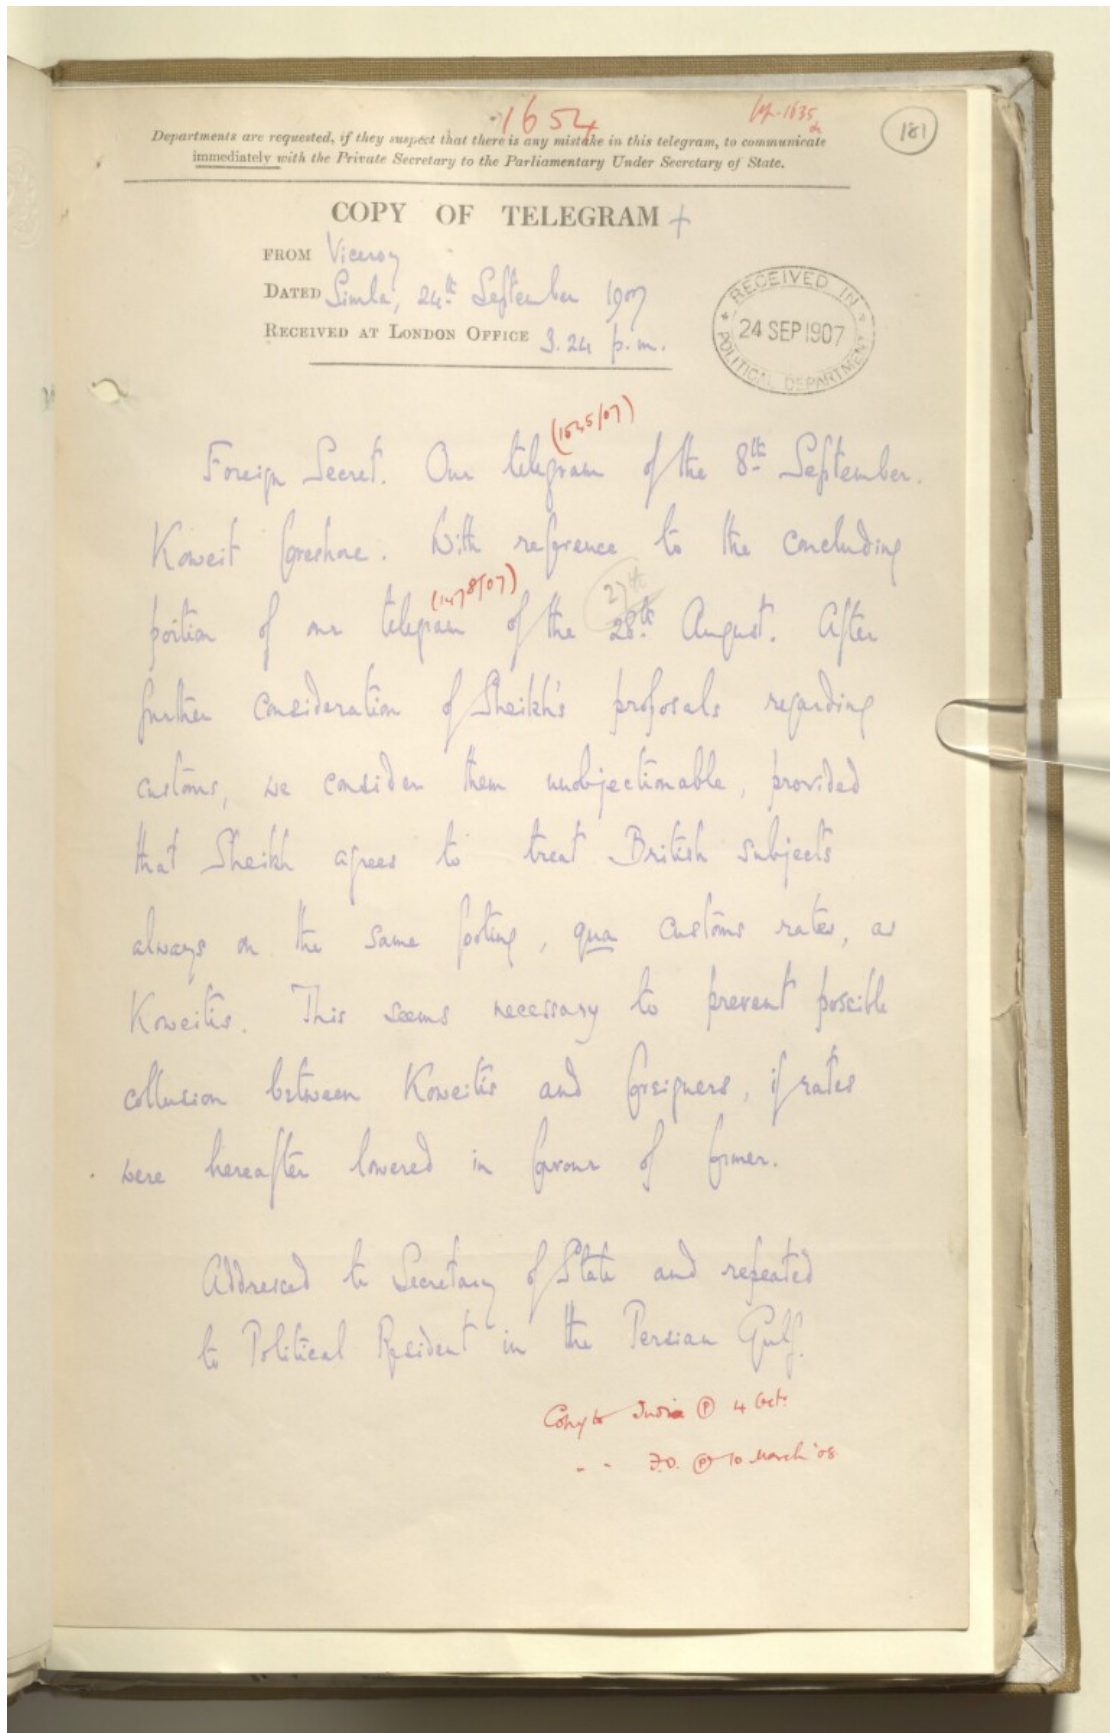 1654
181
Departments are requested, if they suspect that there is any mistake in this telegram, to communicate
immediately with the Private Secretary to the Parliamentary Under Secretary of State.
COPY OF TELEGRAM +
FROM Viceroy
DATED Simla, 24th September 1907
RECEIVED AT LONDON OFFICE 3.24 p.m.
RECEIVED IN
24 SEP 1907
POLITICAL DEPARTMENT
(1635/07)
Foreign Secret. Our telegram of the 8th September.
Koweit foreshore. With reference to the concluding
(1478/07) 27th
portion of our telegram of the 28th August. After
further consideration of Sheikh's proposals regarding
customs, we consider them unobjectionable, provided
that Sheikh agrees to treat British subjects
always on the same footing, qua customs rates, as
Koweitis. This seems necessary to prevent possible
collusion between Koweitis and foreigners, if rates
were hereafter lowered in favour of former.
Addressed to Secretary of State and repeated
to Political Resident in the Persian Gulf.
Copy to India (P) 4 Oct.
" " F.O. (P) 10 March '08.